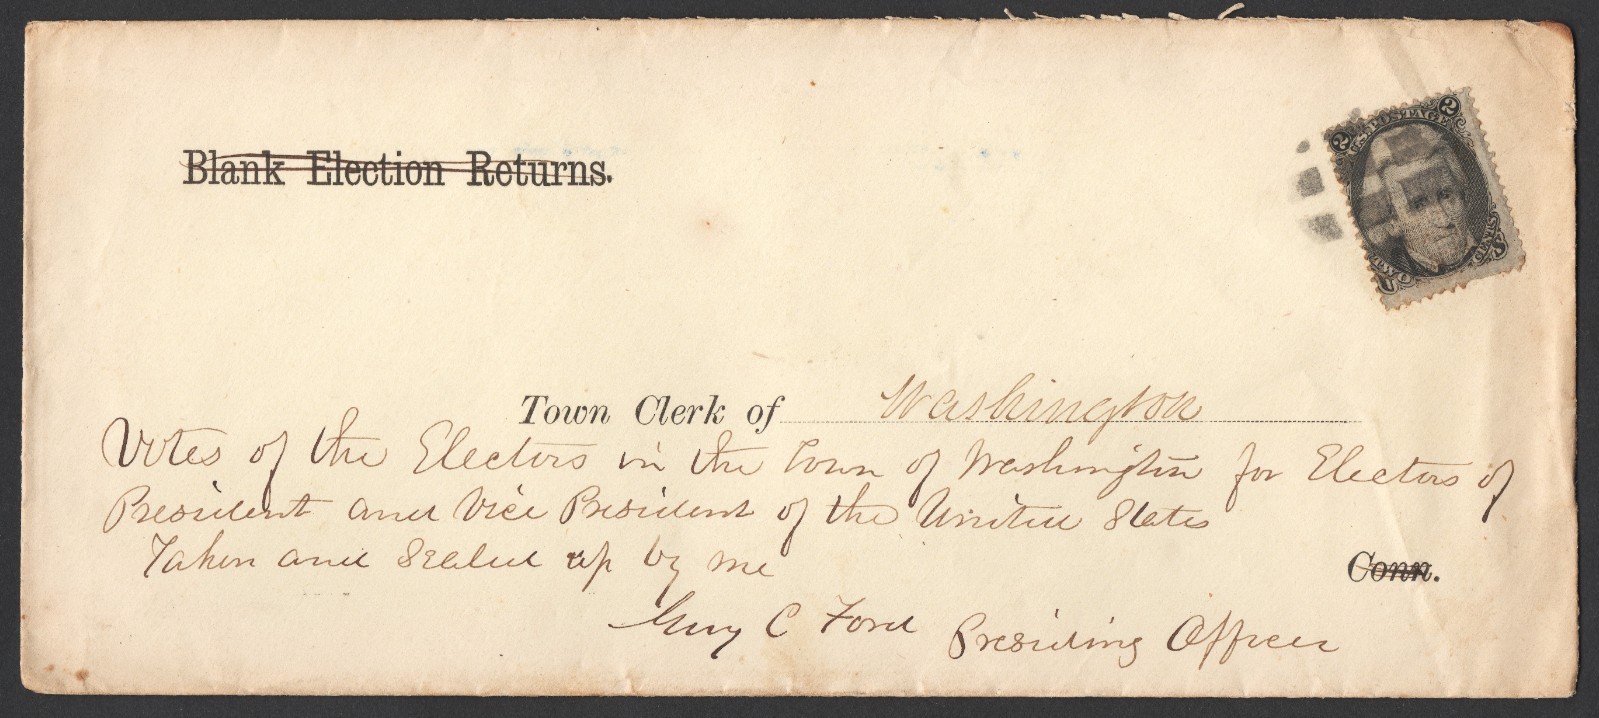 U.S. POSTAGE
2 2
TWO CENTS
Blank Election Returns.
Town Clerk of Washington
Votes of the Electors in the Town of Washington for Electors of
President and Vice President of the United States
Taken and Sealed up by me
Conn.
Guy C Ford Presiding Officer